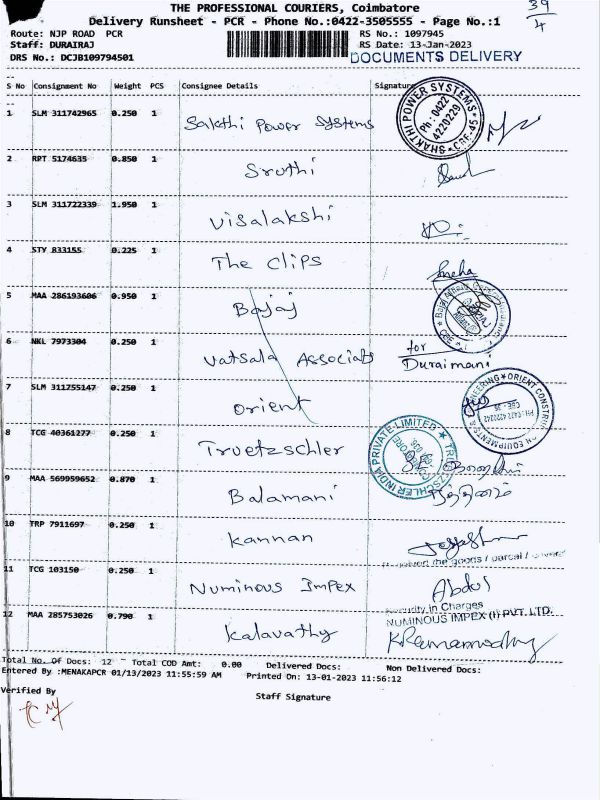 THE PROFESSIONAL COURIERS, Coimbatore
39/4
Delivery Runsheet - PCR - Phone No.:0422-3505555 - Page No.:1
Route: NJP ROAD PCR
RS No.: 1097945
Staff: DURAIRAJ
RS Date: 13-Jan-2023
DRS No.: DCJB109794501
DOCUMENTS DELIVERY
S No Consignment No Weight PCS Consignee Details Signature
1 SLM 311742965 0.250 1 Sakthi Power Systems
SHAKTHI POWER SYSTEMS * CBE-45 * Ph : 0422 4220229
2 RPT 5174635 0.850 1 Sruthi
3 SLM 311722339 1.950 1 Visalakshi
4 STY 833155 0.225 1 The Clips Sneha
5 MAA 286193606 0.950 1 Bajaj
6 NKL 7973304 0.250 1 Vatsala Associats for
Duraimani
7 SLM 311755147 0.250 1 Orient
8 TCG 40361277 0.250 1 Truetzschler
TRUETZSCHLER INDIA PRIVATE LIMITED
9 MAA 569959652 0.870 1 Balamani
10 TRP 7911697 0.250 1 Kannan
the goods / parcel /
11 TCG 103150 0.250 1 Numinous Impex Abdul
Security in Charges
NUMINOUS IMPEX (I) PVT. LTD.
12 MAA 285753026 0.790 1 Kalavathy K Ramamoorthy
Total No. Of Docs: 12 Total COD Amt: 0.00 Delivered Docs: Non Delivered Docs:
Entered By :MENAKAPCR 01/13/2023 11:55:59 AM Printed On: 13-01-2023 11:56:12
Verified By
Staff Signature